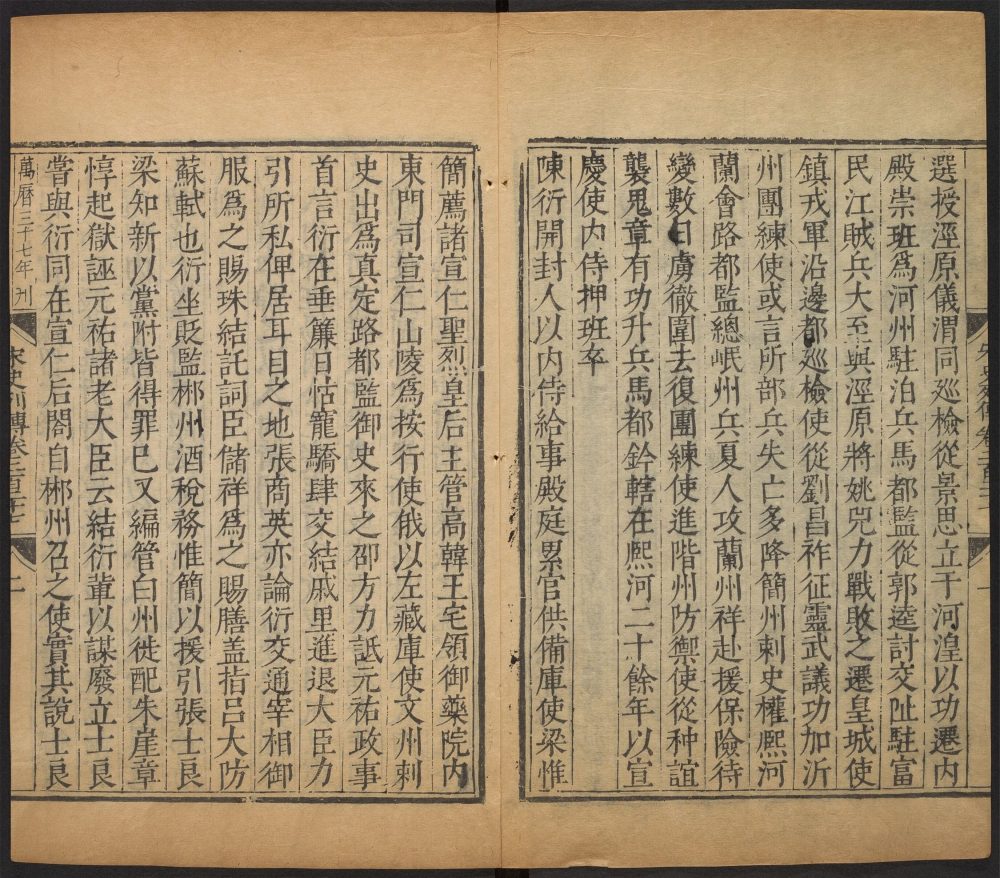 選授涇原儀渭同巡檢從景思立于河湟以功遷内
殿崇班爲河州駐泊兵馬都監從郭逵討交阯駐富
民江賊兵大至與涇原將姚兕力戰敗之遷皇城使
鎮戎軍沿邊都巡檢使從劉昌祚征靈武議功加沂
州團練使或言所部兵失亡多降簡州刺史權熙河
蘭會路都監總岷州兵夏人攻蘭州祥赴援保險待
變數日虜徹圍去復團練使進階州防禦使從种誼
襲鬼章有功升兵馬都鈐轄在熙河二十餘年以宣
慶使内侍押班卒
陳衍開封人以内侍給事殿庭累官供備庫使梁惟
簡薦諸宣仁聖烈皇后主管高韓王宅領御藥院内
東門司宣仁山陵爲按行使俄以左藏庫使文州刺
史出爲真定路都監御史來之邵方力詆元祐政事
首言衍在垂簾日怙寵驕肆交結戚里進退大臣力
引所私俾居耳目之地張商英亦論衍交通宰相御
服爲之賜珠結託詞臣儲祥爲之賜膳盖指吕大防
蘇軾也衍坐貶監郴州酒稅務惟簡以援引張士良
梁知新以黨附皆得罪已又編管白州徙配朱崖章
惇起獄誣元祐諸老大臣云結衍輩以謀廢立士良
嘗與衍同在宣仁后閤自郴州召之使實其說士良
萬曆三十七年刋
宋史列傳卷二百二十七
二